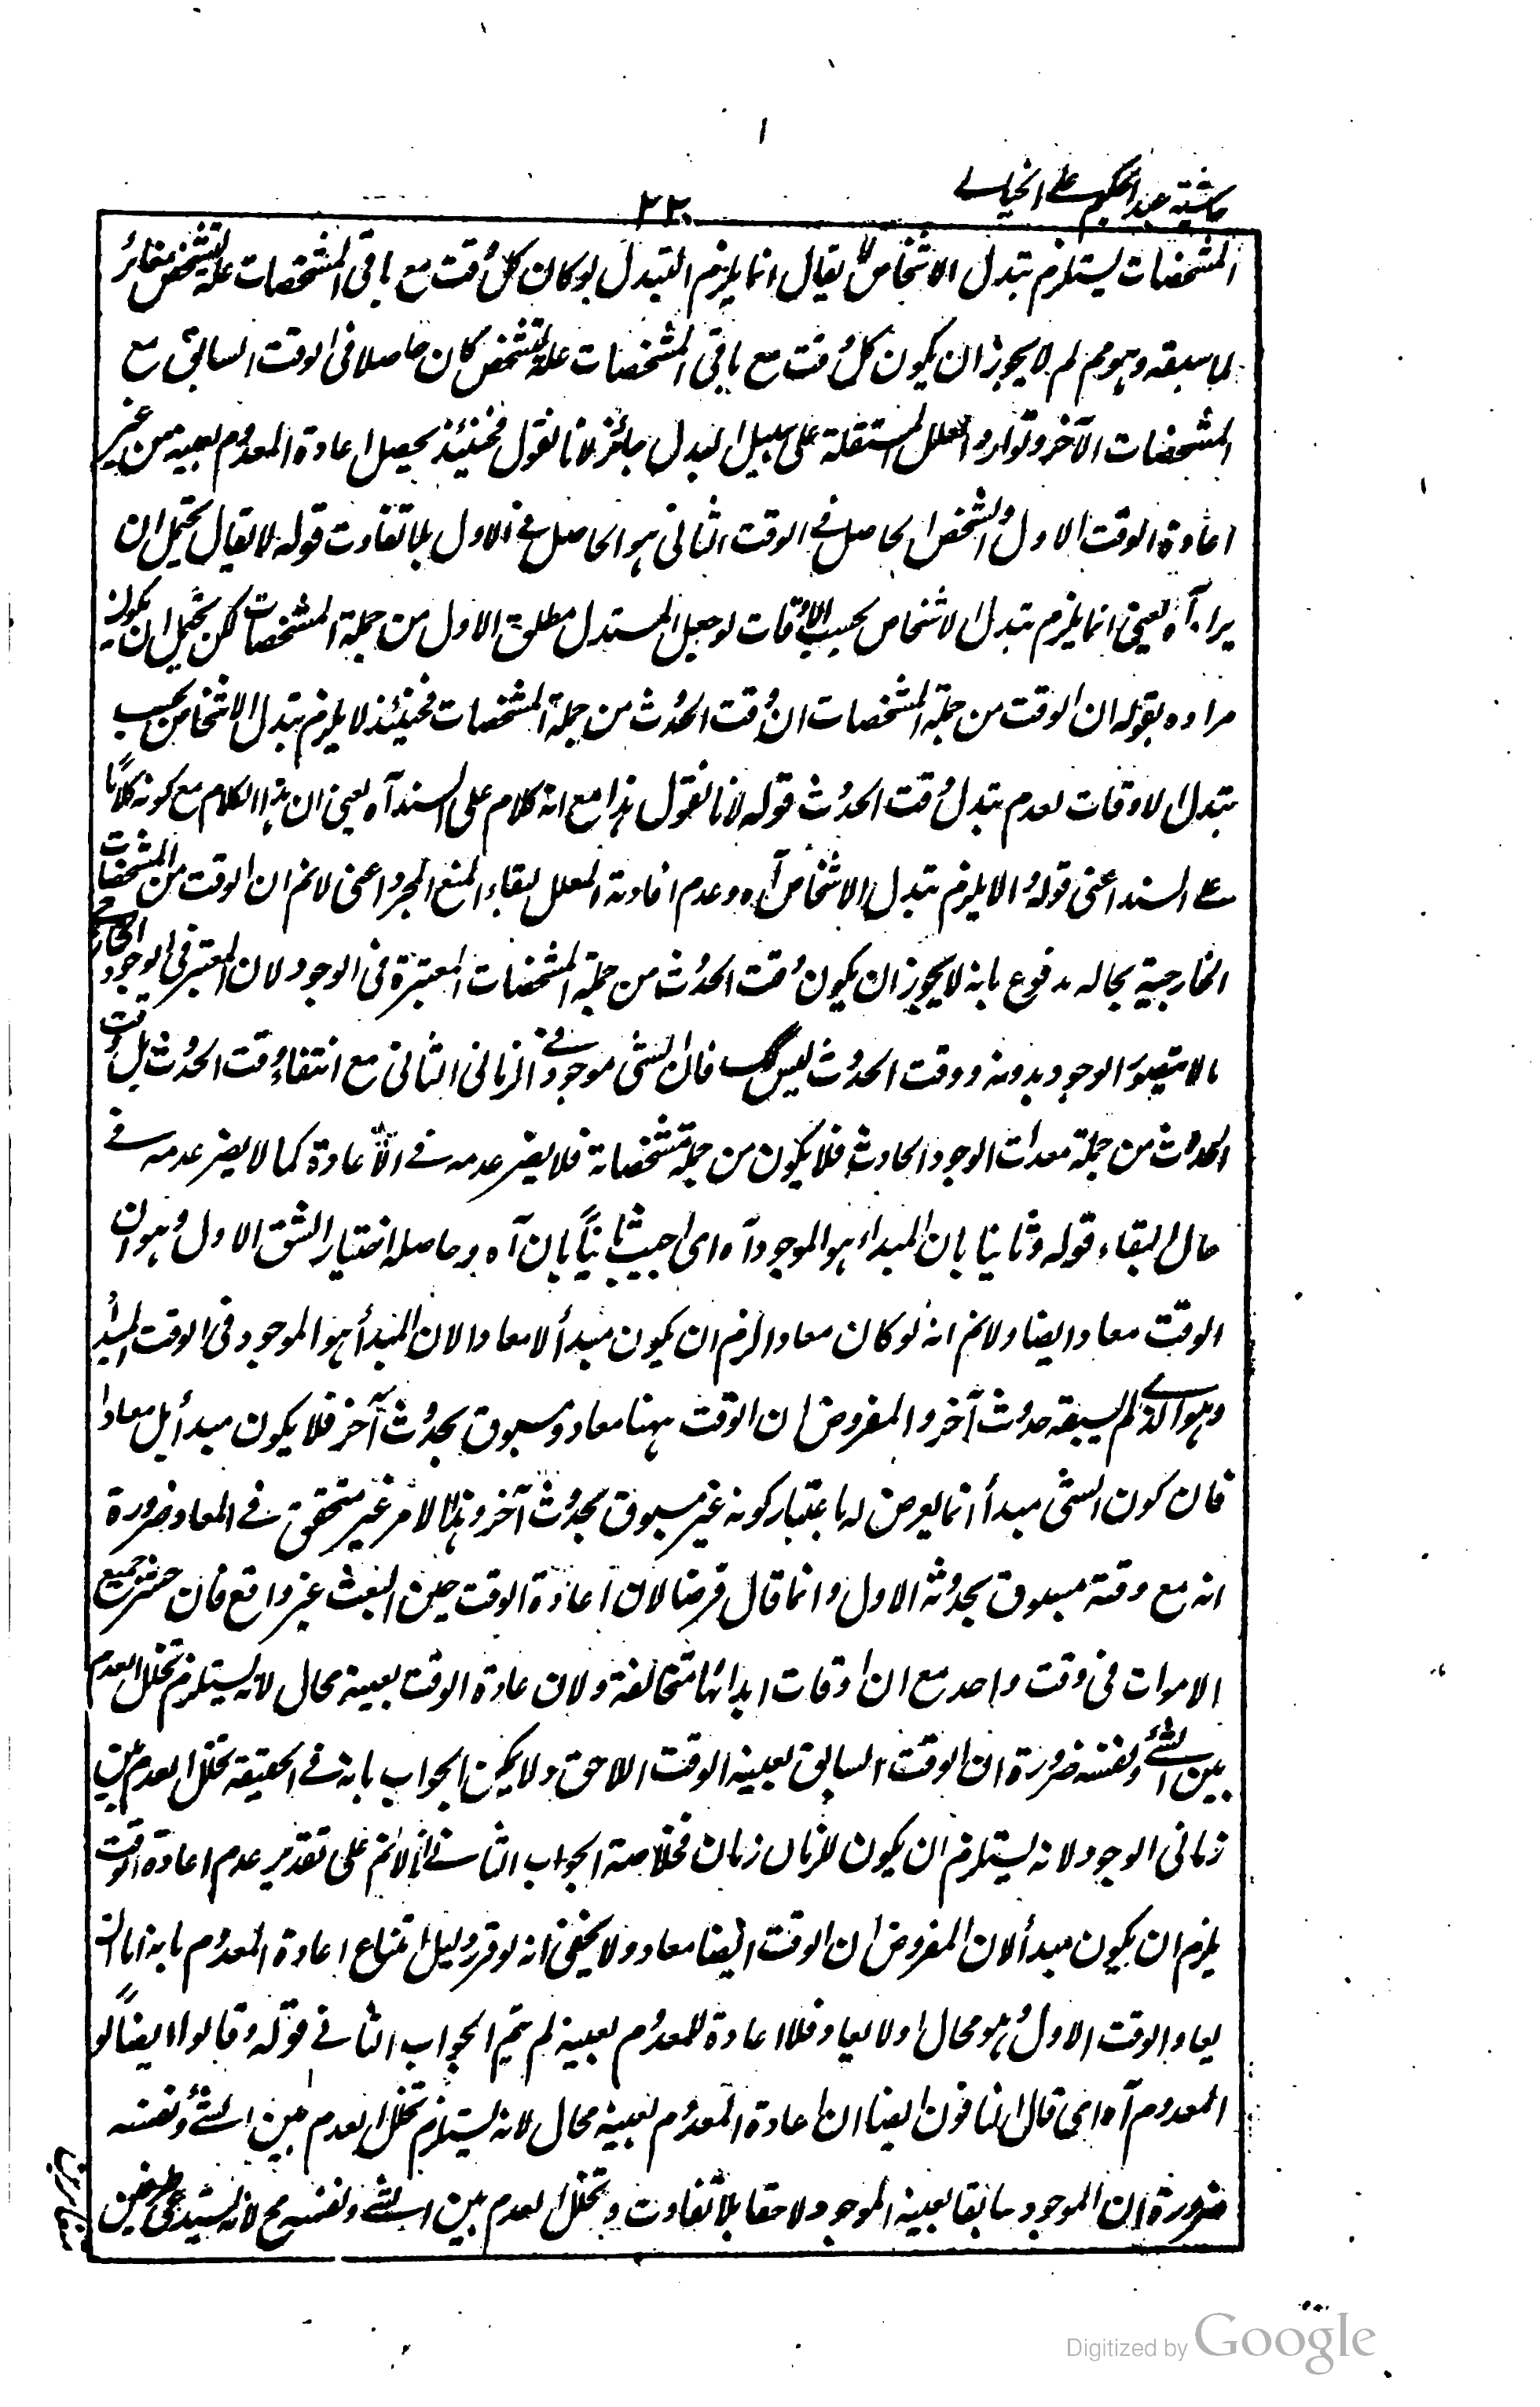 حاشیته عبد الحکیم علے الخیالے
٢٢٠
المشخصات یستلزم تبدل الاشخاص لا یقال انما یلزم التبدل لو کان کل وقت مع باقی المشخصات علة لتشخص مغائر
لما سبقه وهو مم لم لا یجوز ان یکون کل وقت مع باقی المشخصات علة لتشخص کان حاصلا فی الوقت السابق مع
المشخصات الآخر وتوارد العلل المستقلة علی سبیل البدل جائز لانا نقول فحینئذ یحصل اعادة المعدوم بعینه من غیر
اعادة الوقت الاول والشخص الحاصل فے الوقت الثانی هو الحاصل فے الاول بلا تفاوت قوله لا یقال یحتمل ان
یراد آه یعنی انما یلزم تبدل الاشخاص بحسب الاوقات لو جعل المستدل مطلق الاول من جملة المشخصات لکن یحتمل ان یکون
مراده بقوله ان الوقت من جملة المشخصات ان وقت الحدوث من جملة المشخصات فحینئذ لا یلزم تبدل الاشخاص بحسب
تبدل الاوقات لعدم تبدل وقت الحدوث قوله لانا نقول هذا مع انه کلام علی السند آه یعنی ان هذا الکلام مع کونه کلامًا
علے السند اعنی قوله والا یلزم تبدل الاشخاص آه وعدم افادته المعلل لبقاء المنع المجرد اعنی لانم ان الوقت من المشخصات
الخارجیة بحاله مدفوع بانه لا یجوز ان یکون وقت الحدوث من جملة المشخصات المعتبرة فی الوجود لان المعتبر فی الوجود الخارجے
ما لا یتصور الوجود بدونه ووقت الحدوث لیس کک فان الشی موجود فے الزمانی الثانی مع انتفاء وقت الحدوث بل وقت
الحدوث من جملة معدات الوجود الحادث فلا یکون من جملة مشخصاته فلا یضر عدمه فے الاعادة کما لا یضر عدمه فے
حال البقاء قوله وثانیا بان المبداء هو الموجود آه ای اجیب ثانیًا بان آه وحاصله اختیار الشق الاول وهو ان
الوقت معاد ایضا ولانم انه لو کان معادا لزم ان یکون مبدأ لا معادا لان المبدأ هو الموجود فی الوقت المبدأ
وهو الذے لم یسبقه حدوث آخر والمفروض ان الوقت ههنا معاد ومسبوق بحدوث آخر فلا یکون مبدأ بل معادا
فان کون الشی مبدأ انما یعرض له باعتبار کونه غیر مسبوق بحدوث آخر وهذا الامر غیر متحقق فے المعاد ضرورة
انه مع وقته مسبوق بحدوثه الاول وانما قال فرضا لان اعادة الوقت حین البعث غیر واقع فان حشر جمیع
الاموات فی وقت واحد مع ان اوقات ابدانها متخالفة ولان عادة الوقت بعینه محال لانه یستلزم تخلل العدم
بین الشئے ونفسه ضرورة ان الوقت السابق بعینه الوقت اللاحق ولا یمکن الجواب بانه فے الحقیقة تخلل العدم بین
زمانی الوجود لانه یستلزم ان یکون للزمان زمان فخلاصة الجواب الثانے انا لانم علی تقدیر عدم اعادة الوقت
یلزم ان یکون مبدأ لان المفروض ان الوقت ایضا معاد ولا یخفی انه لو قرر دلیل امتناع اعادة المعدوم بانه اما ان
یعاد الوقت الاول وهو محال او لا یعاد فلا اعادة للمعدوم بعینه لم یتم الجواب الثانے قوله وقالوا ایضًا لو
المعدوم آه ای قال المنافون ایضا ان اعادة المعدوم بعینه محال لانه یستلزم تخلل العدم بین الشئے ونفسه
ضرورة ان الموجود سابقا بعینه الموجود لاحقا بلا تفاوت وتخلل العدم بین الشئے ونفسه مح لانه یستدعی طرفین
Digitized by Google